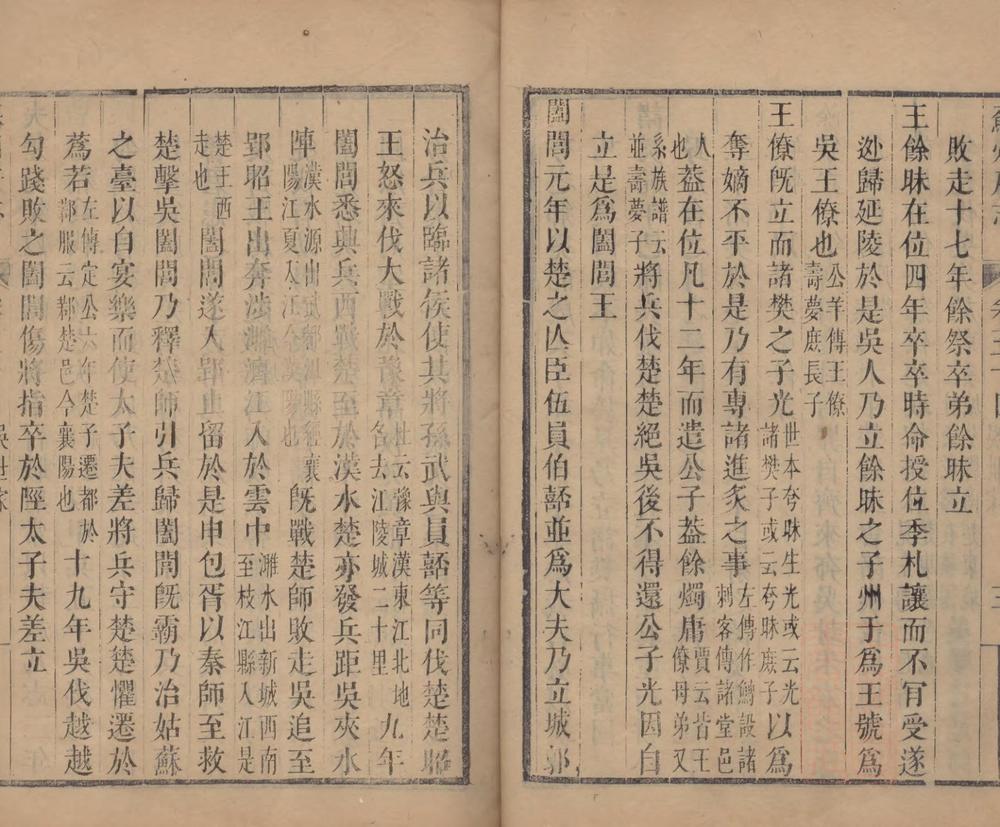 敗走十七年餘祭卒弟餘昧立
王餘昧在位四年卒卒時命授位季札讓而不肯受遂
逃歸延陵於是吳人乃立餘昧之子州于爲王號爲
吳王僚也公羊傳王僚壽夢庶長子
王僚旣立而諸樊之子光世本夸昧生光或云光諸樊子或云夸昧庶子以爲
奪嫡不平於是乃有專諸進炙之事左傳作鱄設諸刺客傳諸堂邑
人也蓋在位凡十二年而遣公子蓋餘燭庸賈云皆王僚母弟又
系族譜云並壽夢子將兵伐楚楚絕吳後不得還公子光因自
立是爲闔閭王
闔閭元年以楚之亾臣伍員伯嚭並爲大夫乃立城郭
治兵以臨諸侯使其將孫武與員嚭等同伐楚楚昭
王怒來伐大戰於豫章杜云豫章漢東江北地名去江陵城二十里九年
闔閭悉興兵西至於漢水楚亦發兵距吳夾水
陣漢水源出武都經襄陽江夏入江也旣戰楚師敗走吳追至
郢昭王出奔涉濉濟江入於雲中濉水出新城西南至枝江縣入江是
楚王西走也闔閭遂入郢且留於是申包胥以秦師至救
楚擊吳闔閭乃釋楚師引兵歸闔閭旣霸乃治姑蘇
之臺以自宴樂而使太子夫差將兵守楚楚懼遷於
蔿若左傳定公六年楚子遷都於鄀服云鄀楚邑今襄陽也十九年吳伐越越
勾踐敗之闔閭傷將指卒於陘太子夫差立
吳世家